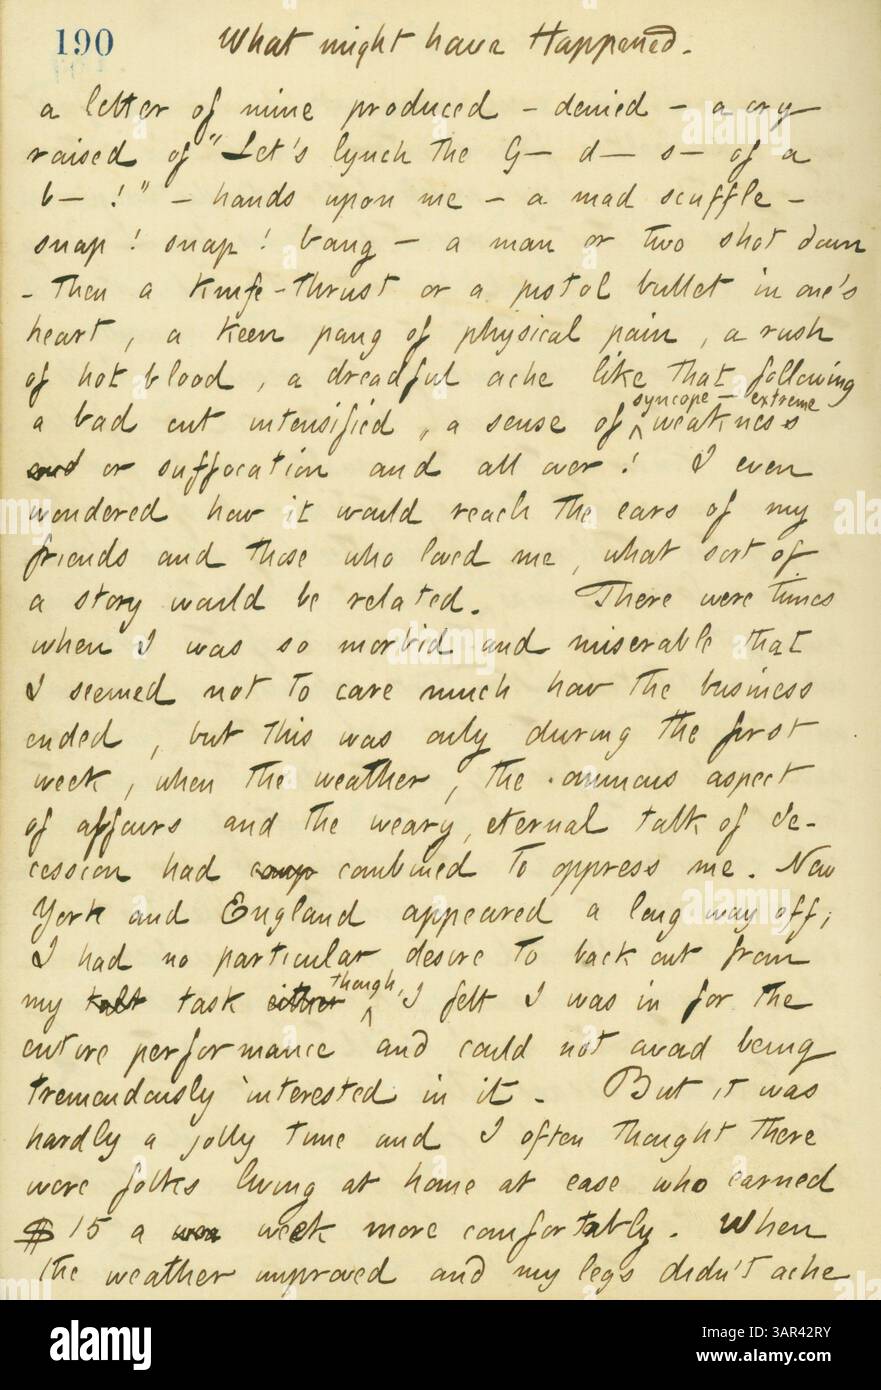 190
What might have Happened.
a letter of mine produced — denied — a cry
raised of "Let's lynch the G— d— s— of a
b— !" — hands upon me — a mad scuffle —
snap ! snap ! bang — a man or two shot down
- then a knife-thrust or a pistol bullet in one's
heart, a keen pang of physical pain, a rush
of hot blood, a dreadful ache like that following
a bad cut intensified, a sense of syncope — extreme weakness
and or suffocation and all over! I even
wondered how it would reach the ears of my
friends and those who loved me, what sort of
a story would be related. There were times
when I was so morbid and miserable that
I seemed not to care much how the business
ended, but this was only during the first
week, when the weather, the ominous aspect
of affairs and the weary, eternal talk of Se-
cession had comp combined to oppress me. New
York and England appeared a long way off;
I had no particular desire to back out from
my talt task either though, I felt I was in for the
entire performance and could not avoid being
tremendously interested in it. But it was
hardly a jolly time and I often thought there
were folks living at home at ease who earned
$15 a wee week more comfortably. When
the weather improved and my legs didn't ache
alamy
Image ID: 3AR42RY
www.alamy.com